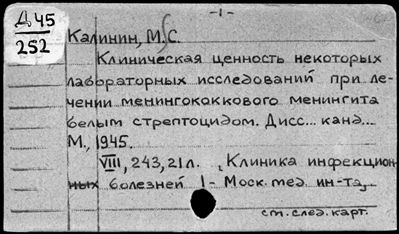 -1-
Д 45
252
Калинин, М. С.
Клиническая ценность некоторых
лабораторных исследований при ле-
чении менингококкового менингита
белым стрептоцидом. Дисс... канд...
М., 1945.
VIII, 243, 21 л. „Клиника инфекцион-
ных болезней 1- Моск. мед. ин-та„
см. след. карт.